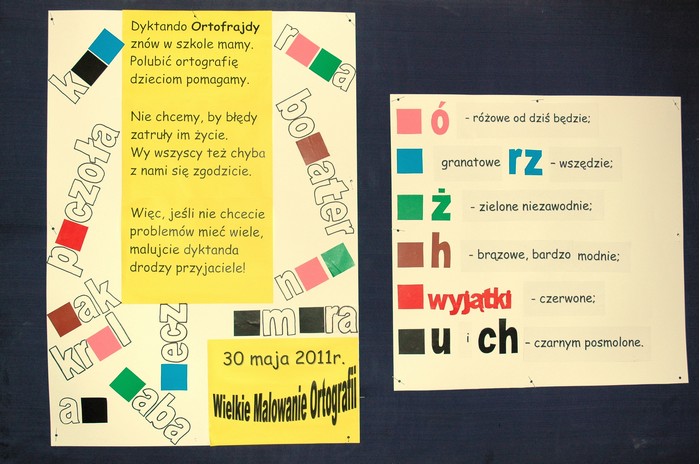 k
p czoła
ak
kr l
a
aba
ecz
Dyktando Ortofrajdy
znów w szkole mamy.
Polubić ortografię
dzieciom pomagamy.
Nie chcemy, by błędy
zatruły im życie.
Wy wszyscy też chyba
z nami się zgodzicie.
Więc, jeśli nie chcecie
problemów mieć wiele,
malujcie dyktanda
drodzy przyjaciele!
r a
bo ater
n
m ra
30 maja 2011r.
Wielkie Malowanie Ortografii
ó - różowe od dziś będzie;
granatowe rz - wszędzie;
ż - zielone niezawodnie;
h - brązowe, bardzo modnie;
wyjątki - czerwone;
u i ch - czarnym posmolone.